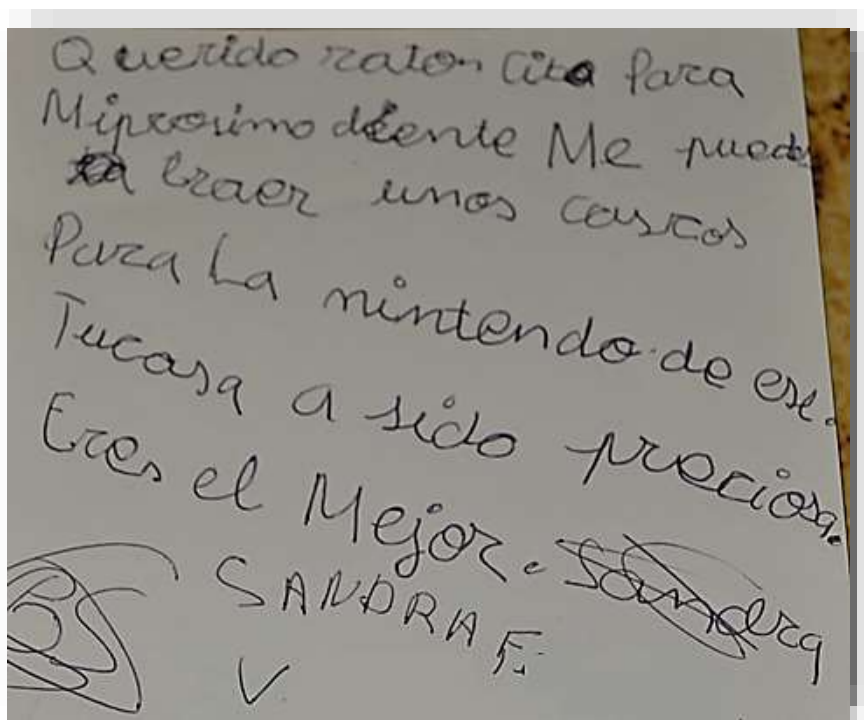 Querido raton cita Para
Miprosimo diente Me puede
traer unos cascos
Para La nintendo de ese.
Tucasa a sido preciosa.
Eres el Mejor. Sandra
SANDRA F.
V